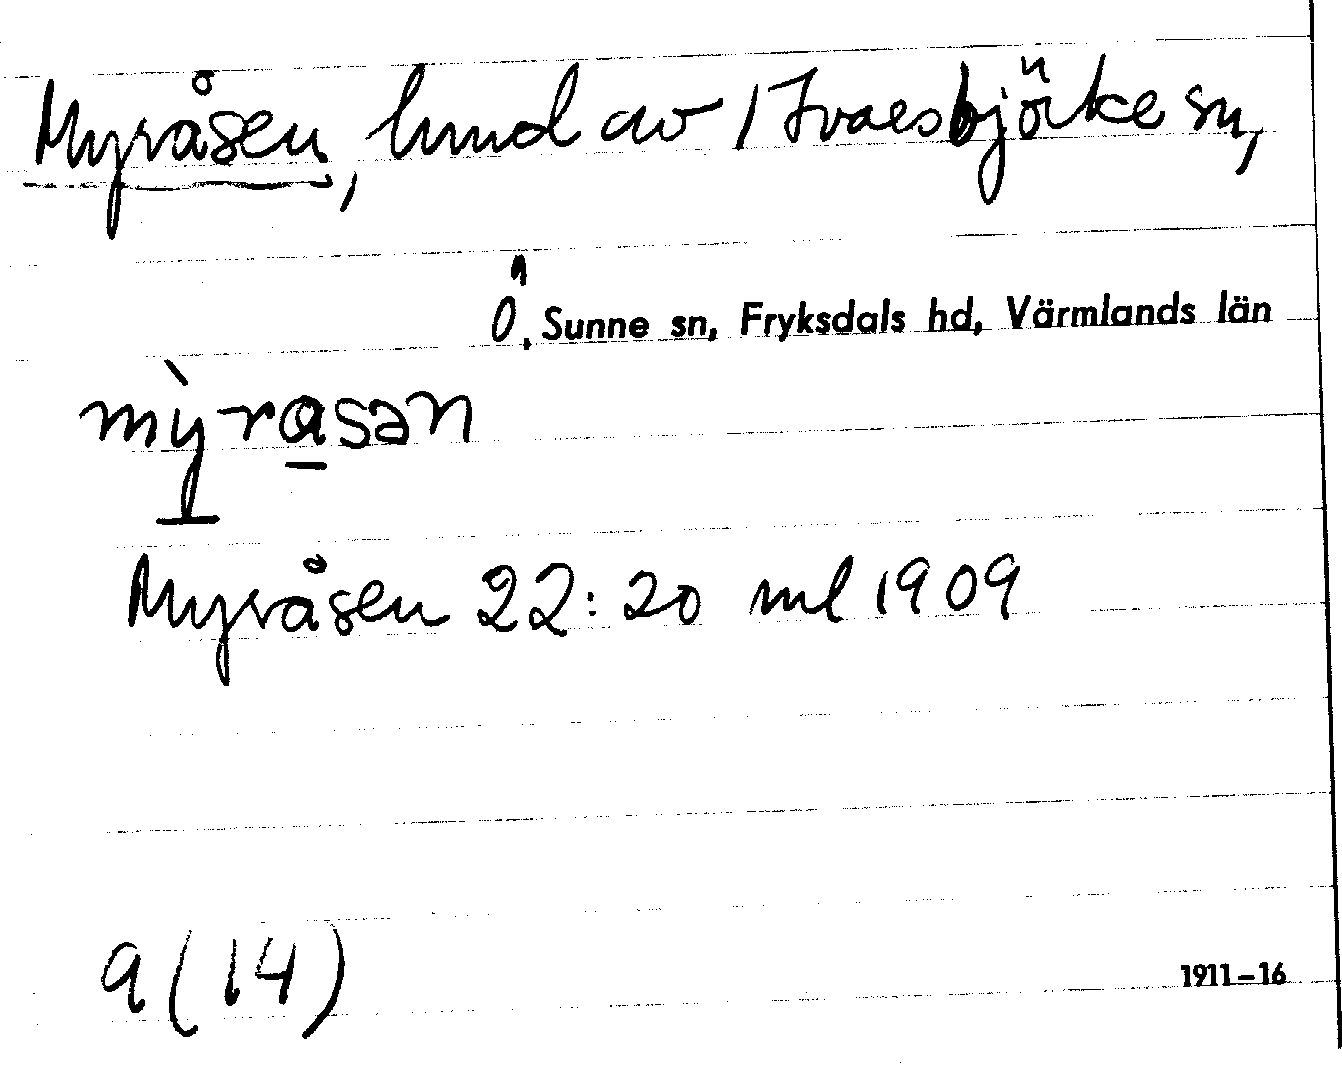 Myråsen, hmd av 1 Ivarsbjörke sn,
Ö, Sunne sn, Fryksdals hd, Värmlands län
mỳrasən
Myråsen 22:20 ml 1909
a (14)
1911-16